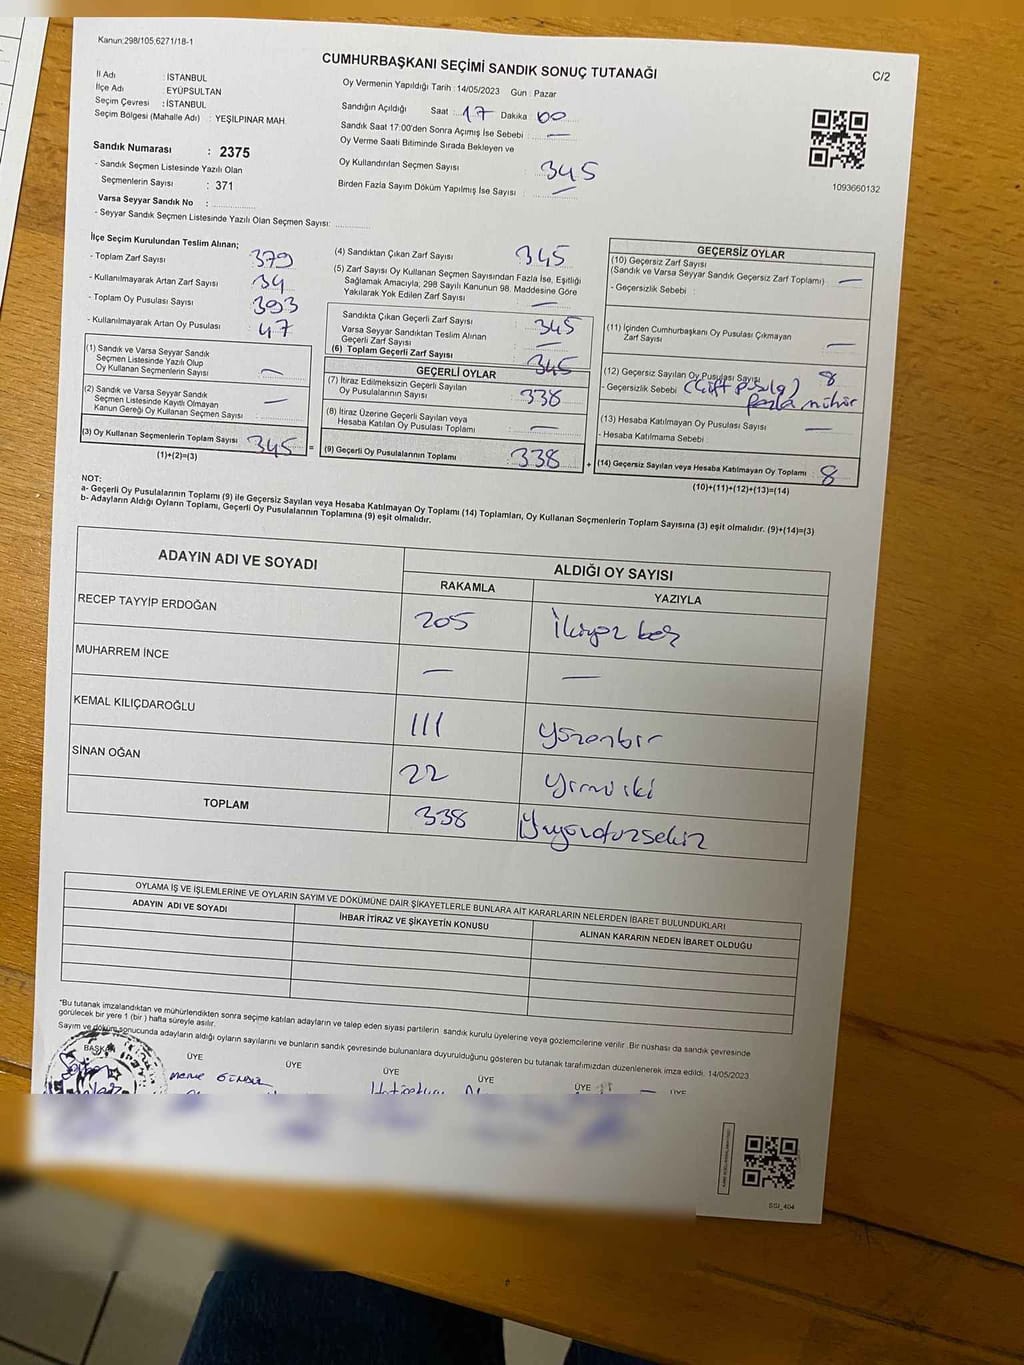 Kanun:298/105,6271/18-1
CUMHURBAŞKANI SEÇİMİ SANDIK SONUÇ TUTANAĞI
C/2
İl Adı : İSTANBUL
İlçe Adı : EYÜPSULTAN
Seçim Çevresi : İSTANBUL
Seçim Bölgesi (Mahalle Adı) : YEŞİLPINAR MAH.
Sandık Numarası : 2375
- Sandık Seçmen Listesinde Yazılı Olan
Seçmenlerin Sayısı : 371
Varsa Seyyar Sandık No :
- Seyyar Sandık Seçmen Listesinde Yazılı Olan Seçmen Sayısı:
Oy Vermenin Yapıldığı Tarih : 14/05/2023 Gün : Pazar
Sandığın Açıldığı Saat : 17 Dakika 00
Sandık Saat 17:00'den Sonra Açımış İse Sebebi : —
Oy Verme Saati Bitiminde Sırada Bekleyen ve
Oy Kullandırılan Seçmen Sayısı : 345
Birden Fazla Sayım Döküm Yapılmış İse Sayısı : —
1093660132
İlçe Seçim Kurulundan Teslim Alınan;
- Toplam Zarf Sayısı 379
- Kullanılmayarak Artan Zarf Sayısı 34
- Toplam Oy Pusulası Sayısı 393
- Kullanılmayarak Artan Oy Pusulası 47
(1) Sandık ve Varsa Seyyar Sandık
Seçmen Listesinde Yazılı Olup
Oy Kullanan Seçmenlerin Sayısı —
(2) Sandık ve Varsa Seyyar Sandık
Seçmen Listesinde Kayıtlı Olmayan
Kanun Gereği Oy Kullanan Seçmen Sayısı —
(3) Oy Kullanan Seçmenlerin Toplam Sayısı 345 =
(1)+(2)=(3)
(4) Sandıktan Çıkan Zarf Sayısı 345
(5) Zarf Sayısı Oy Kullanan Seçmen Sayısından Fazla İse, Eşitliği
Sağlamak Amacıyla, 298 Sayılı Kanunun 98. Maddesine Göre
Yakılarak Yok Edilen Zarf Sayısı —
Sandıkta Çıkan Geçerli Zarf Sayısı : 345
Varsa Seyyar Sandıktan Teslim Alınan
Geçerli Zarf Sayısı : —
(6) Toplam Geçerli Zarf Sayısı 345
GEÇERLİ OYLAR
(7) İtiraz Edilmeksizin Geçerli Sayılan
Oy Pusulalarının Sayısı : 338
(8) İtiraz Üzerine Geçerli Sayılan veya
Hesaba Katılan Oy Pusulası Toplamı : —
(9) Geçerli Oy Pusulalarının Toplamı 338 +
GEÇERSİZ OYLAR
(10) Geçersiz Zarf Sayısı
(Sandık ve Varsa Seyyar Sandık Geçersiz Zarf Toplamı) : —
- Geçersizlik Sebebi :
(11) İçinden Cumhurbaşkanı Oy Pusulası Çıkmayan
Zarf Sayısı : —
(12) Geçersiz Sayılan Oy Pusulası Sayısı 8
- Geçersizlik Sebebi : (Çift pusula)
fazla mühür
(13) Hesaba Katılmayan Oy Pusulası Sayısı : —
- Hesaba Katılmama Sebebi :
(14) Geçersiz Sayılan veya Hesaba Katılmayan Oy Toplamı 8
(10)+(11)+(12)+(13)=(14)
NOT:
a- Geçerli Oy Pusulalarının Toplamı (9) ile Geçersiz Sayılan veya Hesaba Katılmayan Oy Toplamı (14) Toplamları, Oy Kullanan Seçmenlerin Toplam Sayısına (3) eşit olmalıdır. (9)+(14)=(3)
b- Adayların Aldığı Oyların Toplamı, Geçerli Oy Pusulalarının Toplamına (9) eşit olmalıdır.
ADAYIN ADI VE SOYADI
ALDIĞI OY SAYISI
RAKAMLA YAZIYLA
RECEP TAYYİP ERDOĞAN 205 İkiyüz beş
MUHARREM İNCE — —
KEMAL KILIÇDAROĞLU 111 Yüzonbir
SİNAN OĞAN 22 Yirmi iki
TOPLAM 338 Üçyüzotuzsekiz
OYLAMA İŞ VE İŞLEMLERİNE VE OYLARIN SAYIM VE DÖKÜMÜNE DAİR ŞİKAYETLERLE BUNLARA AİT KARARLARIN NELERDEN İBARET BULUNDUKLARI
ADAYIN ADI VE SOYADI İHBAR İTİRAZ VE ŞİKAYETİN KONUSU ALINAN KARARIN NEDEN İBARET OLDUĞU
*Bu tutanak imzalandıktan ve mühürlendikten sonra seçime katılan adayların ve talep eden siyasi partilerin sandık kurulu üyelerine veya gözlemcilerine verilir. Bir nüshası da sandık çevresinde
görülecek bir yere 1 (bir) hafta süreyle asılır.
Sayım ve döküm sonucunda adayların aldığı oyların sayılarını ve bunların sandık çevresinde bulunanlara duyurulduğunu gösteren bu tutanak tarafımızdan düzenlenerek imza edildi. 14/05/2023
BAŞKAN ÜYE ÜYE ÜYE ÜYE ÜYE ÜYE
SSI_404